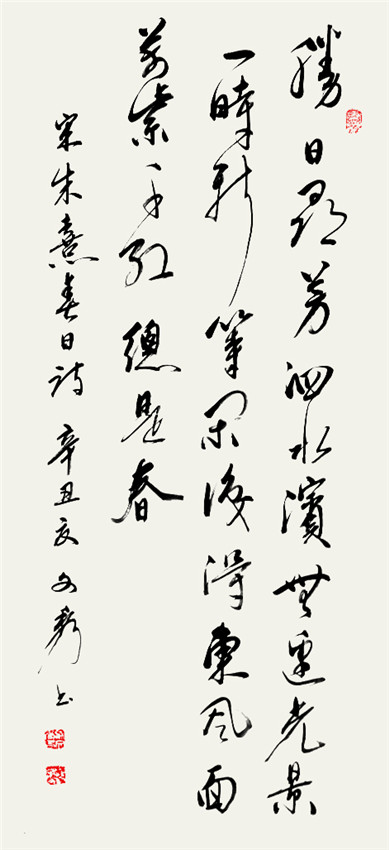 勝日尋芳泗水濱無邊光景
一時新等閑識得東風面
萬紫千紅總是春
宋朱熹春日詩 辛丑夏 文 书